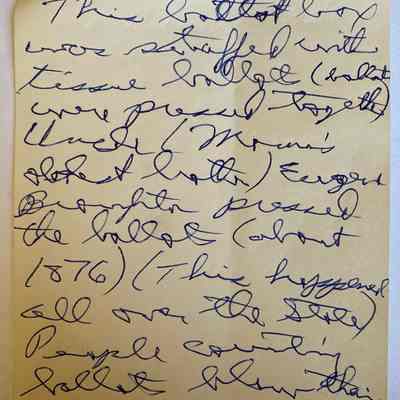 This ballot box
was stuffed with
tissue ballot (ballots
were pressed together)
Uncle (Moma's
oldest brother) Eugene
Broughton pressed
the ballots (about
1876) (This happened
all over the State)
People counting
ballots blew